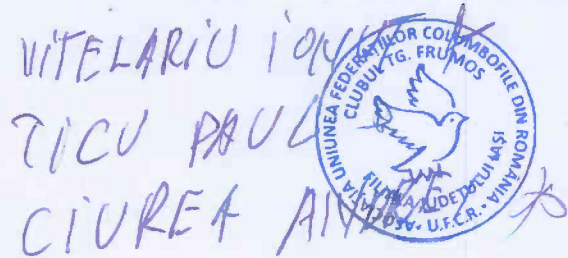 VITELARIU IONUȚ
TICU PAUL
CIUREA
ASOCIAȚIA UNIUNEA FEDERAȚIILOR COLOMBOFILE DIN ROMANIA
CLUBUL TG. FRUMOS
FILIALA JUDEȚULUI IAȘI
U.F.C.R.